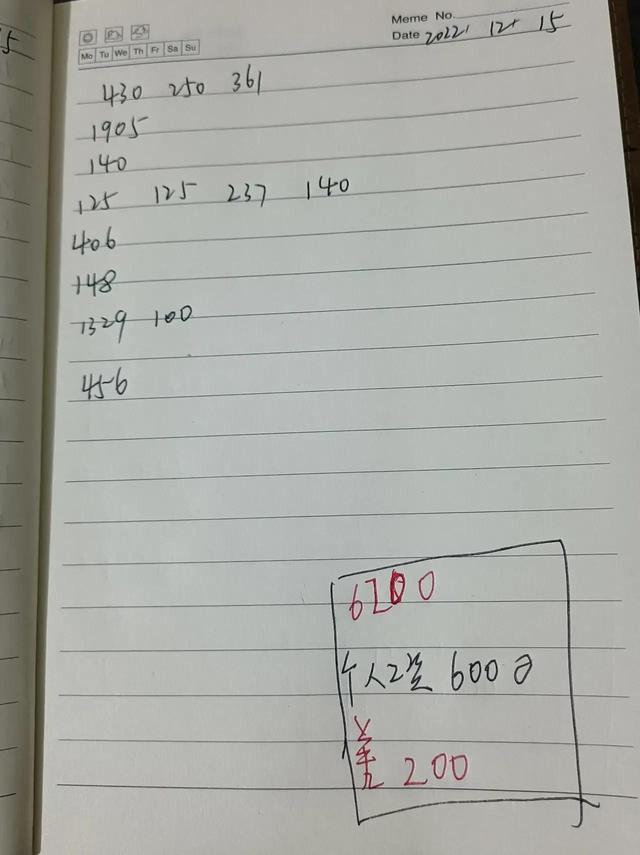 Meme No.
Mo Tu We Th Fr Sa Su
Date 2022. 12. 15
430 250 361
1905
140
125 125 237 140
406
148
1329 100
456
6200
个人2 600
差 200